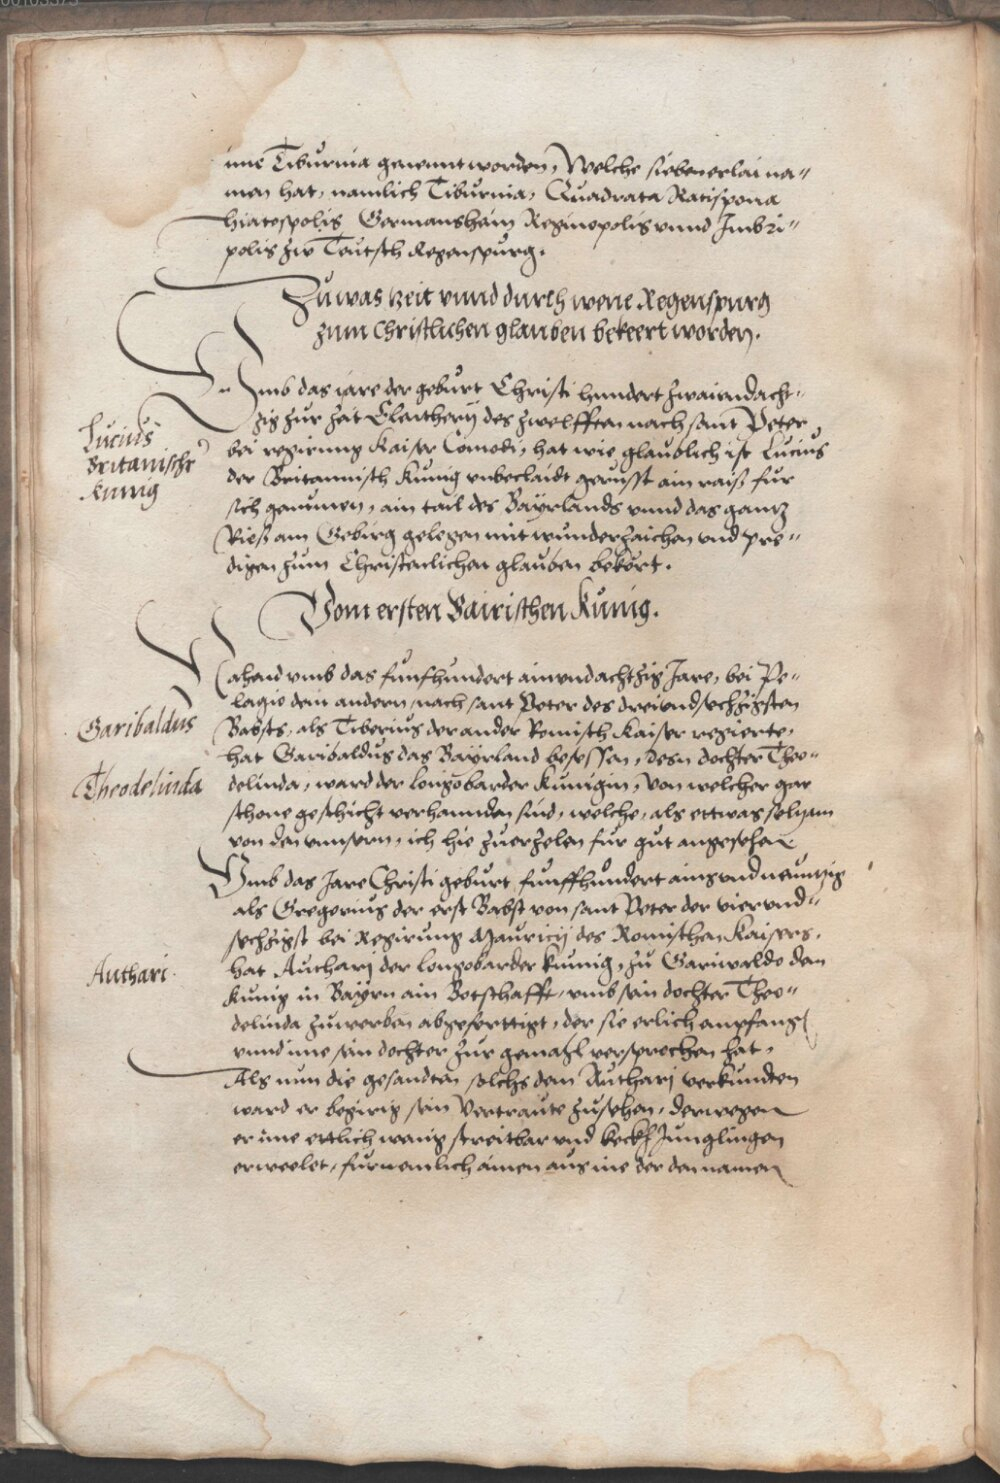 00103375
ime Tiburnia genennt worden, Welche siebenerlai na„
men hat, namlich Tiburnia, Quadrata Ratispona
Hiatospolis Germanshaim Reginopolis vnnd Imbri„
polis zw Teutsch Regenspurg.
Zu was zeit vnnd durch wene Regenspurg
zum Christlichen glauben bekeert worden.
Umb das jare der geburt Christi hundert zwaiundacht„
zig zur zeit Eleutherij des zwelfften nach sant Peter
bei regirung Kaiser Comodi, hat wie glaublich ist Lucius
der Britannisch Kunig vnbeclaidt gerusst ain raiß fur
sich genumen, ain tail des Bayrlands vnnd das gantz
Rieß am Gebirg gelegen mit wunderzaichen vnd pre„
digen zum Christenlichen glauben bekört.
Lucius
Britanische
Kunig
Vom ersten Bairischen Kunig.
Nahend vmb das funfhundert ainundachtzig Jare, bei Pe„
lagio dem andern nach sant Peter des dreiundsechzigsten
Babsts, als Tiberius der ander Romisch Kaiser regierte,
hat Garibaldus das Bayrland besessen, desn dochter Theo„
delinda, ward der Longobarder Kunigin, von welcher gar
schone geschicht verhannden sind, welche, als ettwas selzam
von den vnnsern, ich hie zuerzelen fur gut angesehen
Garibaldus
Theodelinda
Vmb das Jare Christi geburt funffhundert ains vnd neuntzig
als Gregorius der erst Babst von sant Peter der viervnd„
sechzigst bei Regirung Mauricij des Romischen Kaisers,
hat Authari der Longobarder kunig, zu Gariwaldo dem
Kunig in Bayrn ain Botschafft, vmb sein dochter Theo„
delinda zuwerben abgeferttigt, der sie erlich empfangen
vnnd ime sein dochter zur gemahl versprochen hat,
Authari.
Als nun die gesandten solchs dem Authari verkundten
ward er begirig sein Vertraute zusehen, derwegen
er ime ettlich wenig streitbar vnd keckh Junglingen
erweelet, furnemlich ainen aus ine der den namen